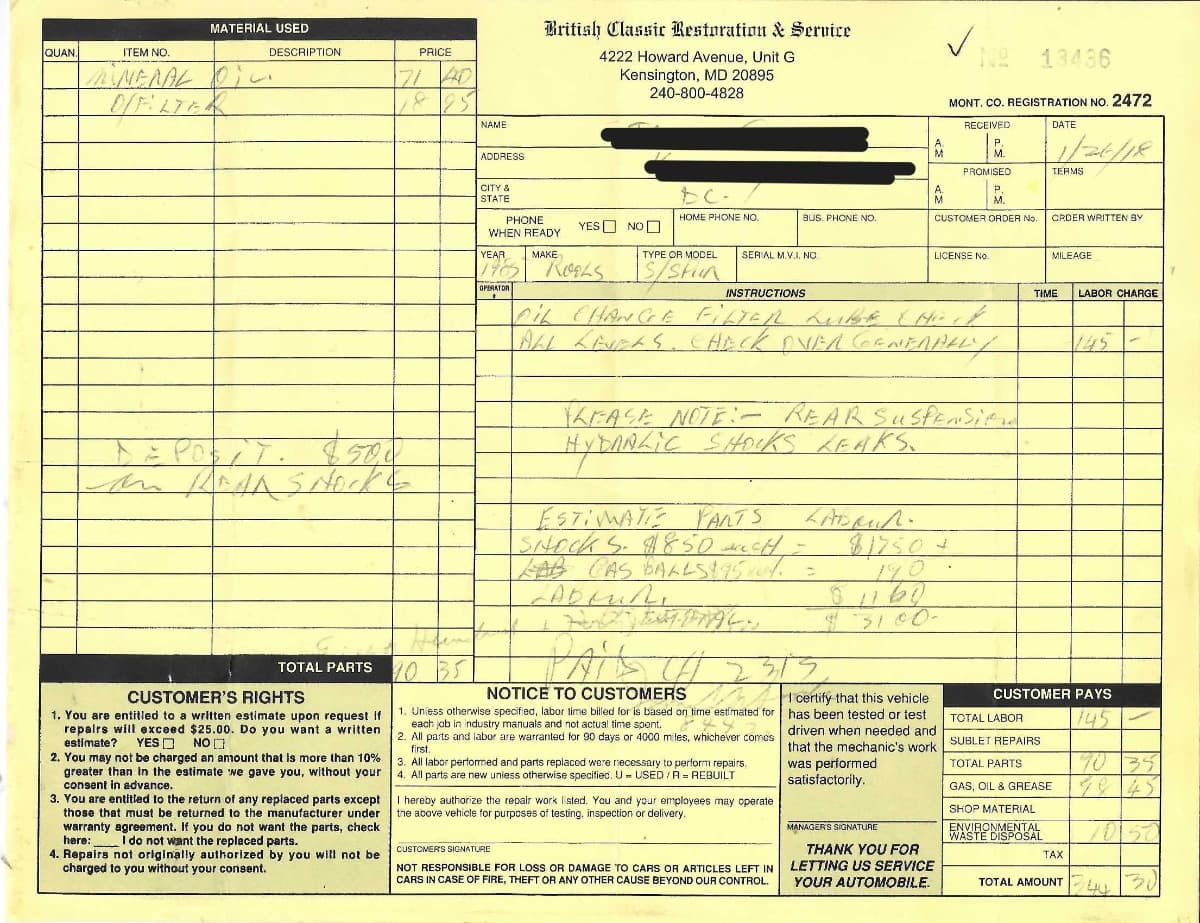 MATERIAL USED
QUAN. ITEM NO. DESCRIPTION PRICE
MINERAL OIL 71 40
O/FILTER 18 95
DEPOSIT. $500
on REAR SHOCKS
TOTAL PARTS 90 35
British Classic Restoration & Service
4222 Howard Avenue, Unit G
Kensington, MD 20895
240-800-4828
No 13436
MONT. CO. REGISTRATION NO. 2472
NAME
ADDRESS
CITY & STATE DC.
RECEIVED A. M P. M.
DATE 1/26/18
PROMISED A. M P. M.
TERMS
PHONE WHEN READY YES NO
HOME PHONE NO. BUS. PHONE NO. CUSTOMER ORDER No. ORDER WRITTEN BY
YEAR 1985 MAKE ROLLS TYPE OR MODEL S/SPUR SERIAL M.V.I. NO. LICENSE No. MILEAGE
OPERATOR # INSTRUCTIONS TIME LABOR CHARGE
OIL CHANGE FILTER LUBE CHECK
ALL LEVELS. CHECK OVER GENERALLY 145 -
PLEASE NOTE:- REAR SUSPENSION
HYDRALIC SHOCKS LEAKS.
ESTIMATE PARTS LABOUR.
SHOCKS. $850 each = $1750 +
GAS BALLS $95 = 190
LABOUR. $ 1160
$ 3100-
PAID
CUSTOMER'S RIGHTS
1. You are entitled to a written estimate upon request if
repairs will exceed $25.00. Do you want a written
estimate? YES NO
2. You may not be charged an amount that is more than 10%
greater than in the estimate we gave you, without your
consent in advance.
3. You are entitled to the return of any replaced parts except
those that must be returned to the manufacturer under
warranty agreement. If you do not want the parts, check
here: ____ I do not want the replaced parts.
4. Repairs not originally authorized by you will not be
charged to you without your consent.
NOTICE TO CUSTOMERS
1. Unless otherwise specified, labor time billed for is based on time estimated for
each job in industry manuals and not actual time spent.
2. All parts and labor are warranted for 90 days or 4000 miles, whichever comes
first.
3. All labor performed and parts replaced were necessary to perform repairs.
4. All parts are new unless otherwise specified. U = USED / R = REBUILT
I hereby authorize the repair work listed. You and your employees may operate
the above vehicle for purposes of testing, inspection or delivery.
CUSTOMER'S SIGNATURE
NOT RESPONSIBLE FOR LOSS OR DAMAGE TO CARS OR ARTICLES LEFT IN
CARS IN CASE OF FIRE, THEFT OR ANY OTHER CAUSE BEYOND OUR CONTROL.
I certify that this vehicle
has been tested or test
driven when needed and
that the mechanic's work
was performed
satisfactorily.
MANAGER'S SIGNATURE
THANK YOU FOR
LETTING US SERVICE
YOUR AUTOMOBILE.
CUSTOMER PAYS
TOTAL LABOR 145 -
SUBLET REPAIRS
TOTAL PARTS 90 35
GAS, OIL & GREASE 98 45
SHOP MATERIAL
ENVIRONMENTAL WASTE DISPOSAL 10 50
TAX
TOTAL AMOUNT 344 30